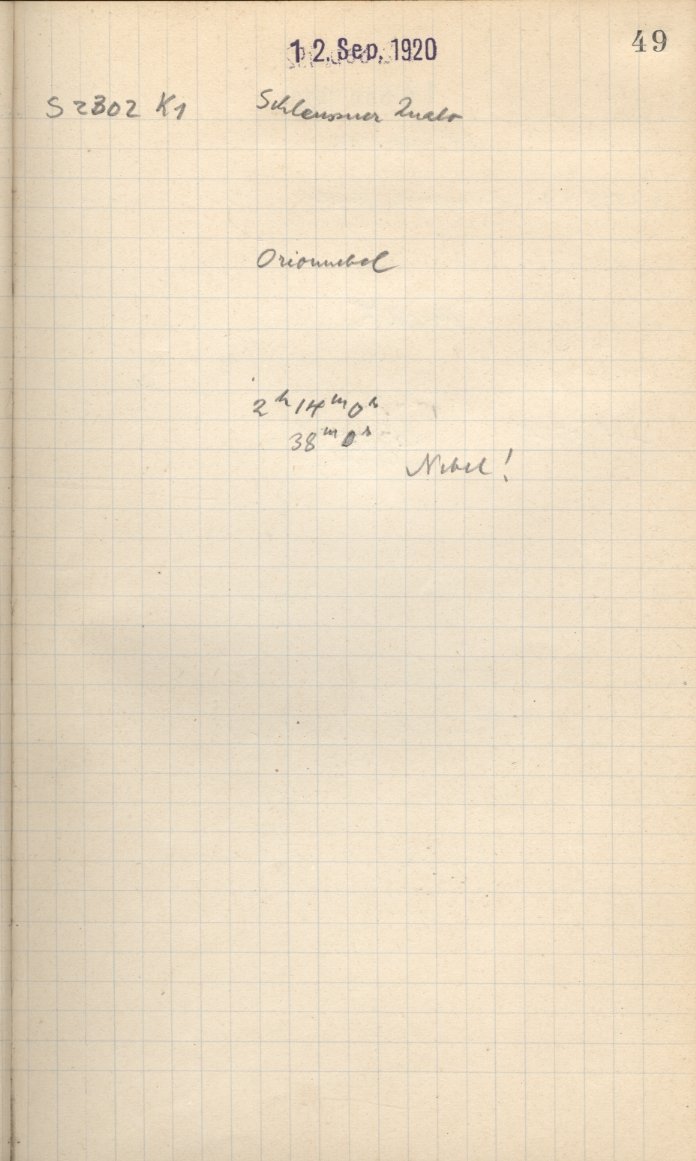 12. Sep. 1920
49
S 2302 K1 Schleussner
Orionnebel
2ʰ14ᵐ0ˢ
38ᵐ0ˢ
Nebel!